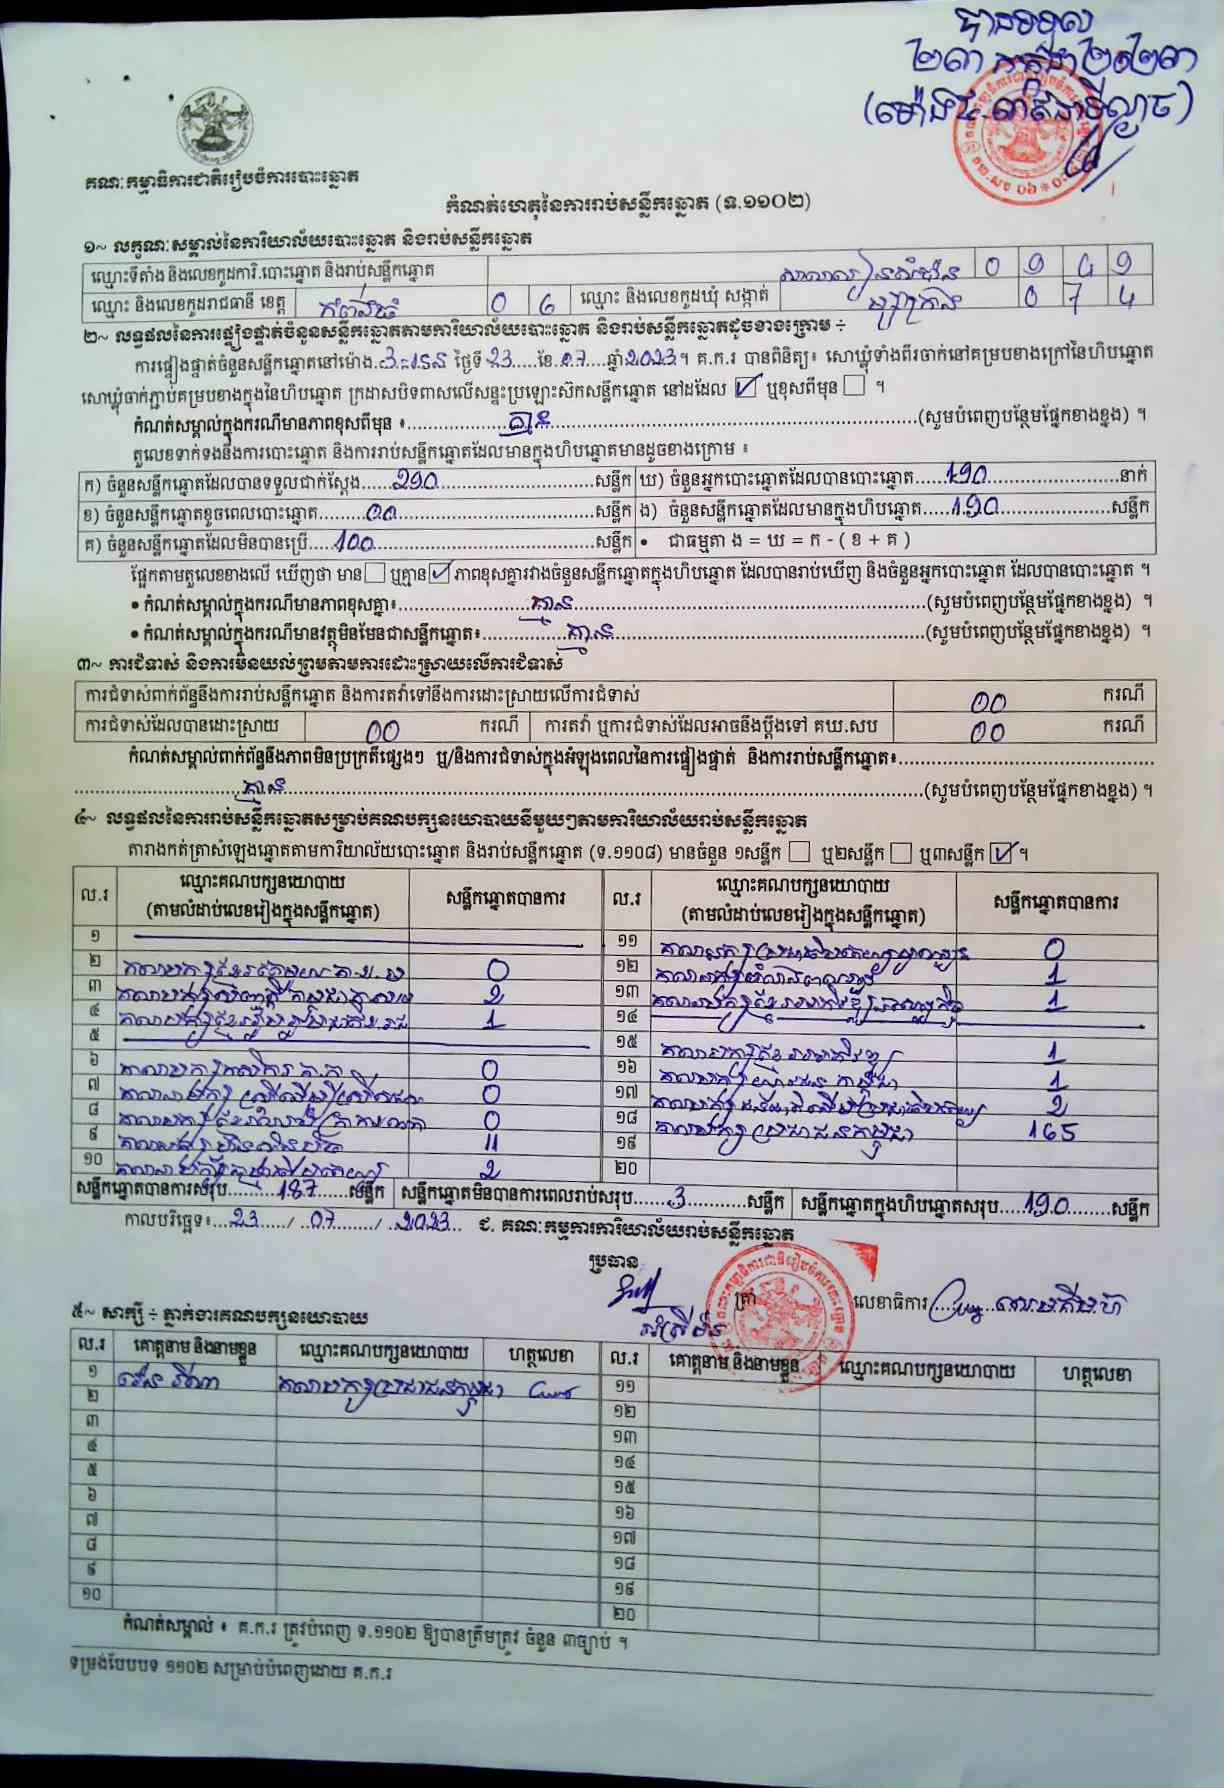 បានទទួល
២៣ កក្កដា ២០២៣
គណៈកម្មាធិការជាតិរៀបចំការបោះឆ្នោត
កំណត់ហេតុនៃការរាប់សន្លឹកឆ្នោត (ទ.១១០២)
១~ លក្ខណៈសម្គាល់នៃការិយាល័យបោះឆ្នោត និងរាប់សន្លឹកឆ្នោត
ឈ្មោះទីតាំង និងលេខកូដការិ.បោះឆ្នោត និងរាប់សន្លឹកឆ្នោត 0 9 4 9
ឈ្មោះ និងលេខកូដរាជធានី ខេត្ត កំពង់ធំ 0 6 ឈ្មោះ និងលេខកូដឃុំ សង្កាត់ 0 7 4
២~ លទ្ធផលនៃការផ្ទៀងផ្ទាត់ចំនួនសន្លឹកឆ្នោតតាមការិយាល័យបោះឆ្នោត និងរាប់សន្លឹកឆ្នោតដូចខាងក្រោម ÷
ការផ្ទៀងផ្ទាត់ចំនួនសន្លឹកឆ្នោតនៅម៉ោង ថ្ងៃទី 23 ខែ 07 ឆ្នាំ 2023។ គ.ក.រ បានពិនិត្យ៖ សោឃ្លុំទាំងពីរចាក់នៅគម្របខាងក្រៅនៃហិបឆ្នោត
សោឃ្លុំចាក់ភ្ជាប់គម្របខាងក្នុងនៃហិបឆ្នោត ក្រដាសបិទពាសលើសន្ទះប្រឡោះស៊កសន្លឹកឆ្នោត នៅដដែល ☑ ឬខុសពីមុន ☐ ។
កំណត់សម្គាល់ក្នុងករណីមានភាពខុសពីមុន ៖ គ្មាន (សូមបំពេញបន្ថែមផ្នែកខាងខ្នង) ។
តួលេខទាក់ទងនឹងការបោះឆ្នោត និងការរាប់សន្លឹកឆ្នោតដែលមានក្នុងហិបឆ្នោតមានដូចខាងក្រោម ៖
ក) ចំនួនសន្លឹកឆ្នោតដែលបានទទួលជាក់ស្តែង 290 សន្លឹក ឃ) ចំនួនអ្នកបោះឆ្នោតដែលបានបោះឆ្នោត 190 នាក់
ខ) ចំនួនសន្លឹកឆ្នោតខូចពេលបោះឆ្នោត 00 សន្លឹក ង) ចំនួនសន្លឹកឆ្នោតដែលមានក្នុងហិបឆ្នោត 190 សន្លឹក
គ) ចំនួនសន្លឹកឆ្នោតដែលមិនបានប្រើ 100 សន្លឹក • ជាធម្មតា ង = ឃ = ក - ( ខ + គ )
ផ្អែកតាមតួលេខខាងលើ ឃើញថា មាន ☐ ឬគ្មាន ☑ ភាពខុសគ្នារវាងចំនួនសន្លឹកឆ្នោតក្នុងហិបឆ្នោត ដែលបានរាប់ឃើញ និងចំនួនអ្នកបោះឆ្នោត ដែលបានបោះឆ្នោត ។
• កំណត់សម្គាល់ក្នុងករណីមានភាពខុសគ្នា៖ គ្មាន (សូមបំពេញបន្ថែមផ្នែកខាងខ្នង) ។
• កំណត់សម្គាល់ក្នុងករណីមានវត្ថុមិនមែនជាសន្លឹកឆ្នោត៖ គ្មាន (សូមបំពេញបន្ថែមផ្នែកខាងខ្នង) ។
៣~ ការជំទាស់ និងការមិនយល់ព្រមតាមការដោះស្រាយលើការជំទាស់
ការជំទាស់ពាក់ព័ន្ធនឹងការរាប់សន្លឹកឆ្នោត និងការតវ៉ាទៅនឹងការដោះស្រាយលើការជំទាស់ 00 ករណី
ការជំទាស់ដែលបានដោះស្រាយ 00 ករណី ការតវ៉ា ឬការជំទាស់ដែលអាចនឹងប្តឹងទៅ គឃ.សប 00 ករណី
កំណត់សម្គាល់ពាក់ព័ន្ធនឹងភាពមិនប្រក្រតីផ្សេងៗ ឬ/និងការជំទាស់ក្នុងអំឡុងពេលនៃការផ្ទៀងផ្ទាត់ និងការរាប់សន្លឹកឆ្នោត៖
គ្មាន (សូមបំពេញបន្ថែមផ្នែកខាងខ្នង) ។
៤~ លទ្ធផលនៃការរាប់សន្លឹកឆ្នោតសម្រាប់គណបក្សនយោបាយនីមួយៗតាមការិយាល័យរាប់សន្លឹកឆ្នោត
តារាងកត់ត្រាសំឡេងឆ្នោតតាមការិយាល័យបោះឆ្នោត និងរាប់សន្លឹកឆ្នោត (ទ.១១០៨) មានចំនួន ១សន្លឹក ☐ ឬ២សន្លឹក ☐ ឬ៣សន្លឹក ☑ ។
ល.រ ឈ្មោះគណបក្សនយោបាយ (តាមលំដាប់លេខរៀងក្នុងសន្លឹកឆ្នោត) សន្លឹកឆ្នោតបានការ ល.រ ឈ្មោះគណបក្សនយោបាយ (តាមលំដាប់លេខរៀងក្នុងសន្លឹកឆ្នោត) សន្លឹកឆ្នោតបានការ
១ ១១ 0
២ 0 ១២ 1
៣ 2 ១៣ 1
៤ 1 ១៤
៥ ១៥ 1
៦ 0 ១៦ 1
៧ 0 ១៧ 2
៨ 0 ១៨ គណបក្សប្រជាជនកម្ពុជា 165
៩ 11 ១៩
១០ 2 ២០
សន្លឹកឆ្នោតបានការសរុប 187 សន្លឹក សន្លឹកឆ្នោតមិនបានការពេលរាប់សរុប 3 សន្លឹក សន្លឹកឆ្នោតក្នុងហិបឆ្នោតសរុប 190 សន្លឹក
កាលបរិច្ឆេទ៖ 23 / 07 / 2023 ជ. គណៈកម្មការការិយាល័យរាប់សន្លឹកឆ្នោត
ប្រធាន
ត្រា លេខាធិការ
៥~ សាក្សី ÷ ភ្នាក់ងារគណបក្សនយោបាយ
ល.រ គោត្តនាម និងនាមខ្លួន ឈ្មោះគណបក្សនយោបាយ ហត្ថលេខា ល.រ គោត្តនាម និងនាមខ្លួន ឈ្មោះគណបក្សនយោបាយ ហត្ថលេខា
១ គណបក្សប្រជាជនកម្ពុជា ១១
២ ១២
៣ ១៣
៤ ១៤
៥ ១៥
៦ ១៦
៧ ១៧
៨ ១៨
៩ ១៩
១០ ២០
កំណត់សម្គាល់ ៖ គ.ក.រ ត្រូវបំពេញ ទ.១១០២ ឱ្យបានត្រឹមត្រូវ ចំនួន ៣ច្បាប់ ។
ទម្រង់បែបបទ ១១០២ សម្រាប់បំពេញដោយ គ.ក.រ